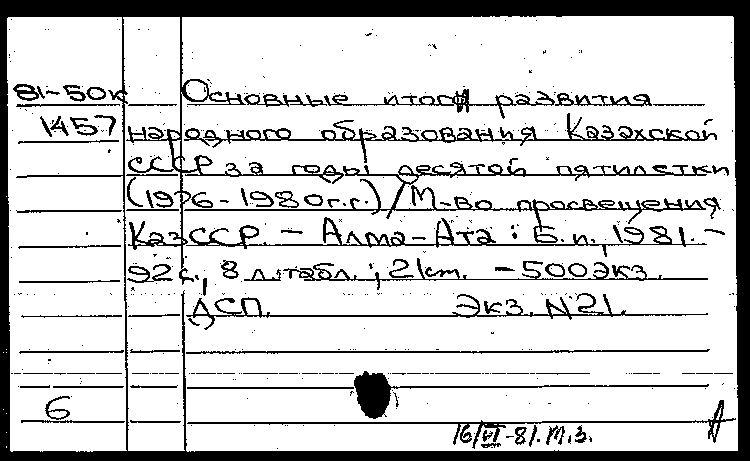 81-50к Основные итоги развития
1457 народного образования Казахской
СССР за годы десятой пятилетки
(1976-1980г.г.)/М-во просвещения
КазССР. - Алма-Ата: Б.и., 1981. -
92с., 8 л.табл.; 21cm. - 500экз.
ДСП. Экз. N21.
6
16/VI-81. т.з.